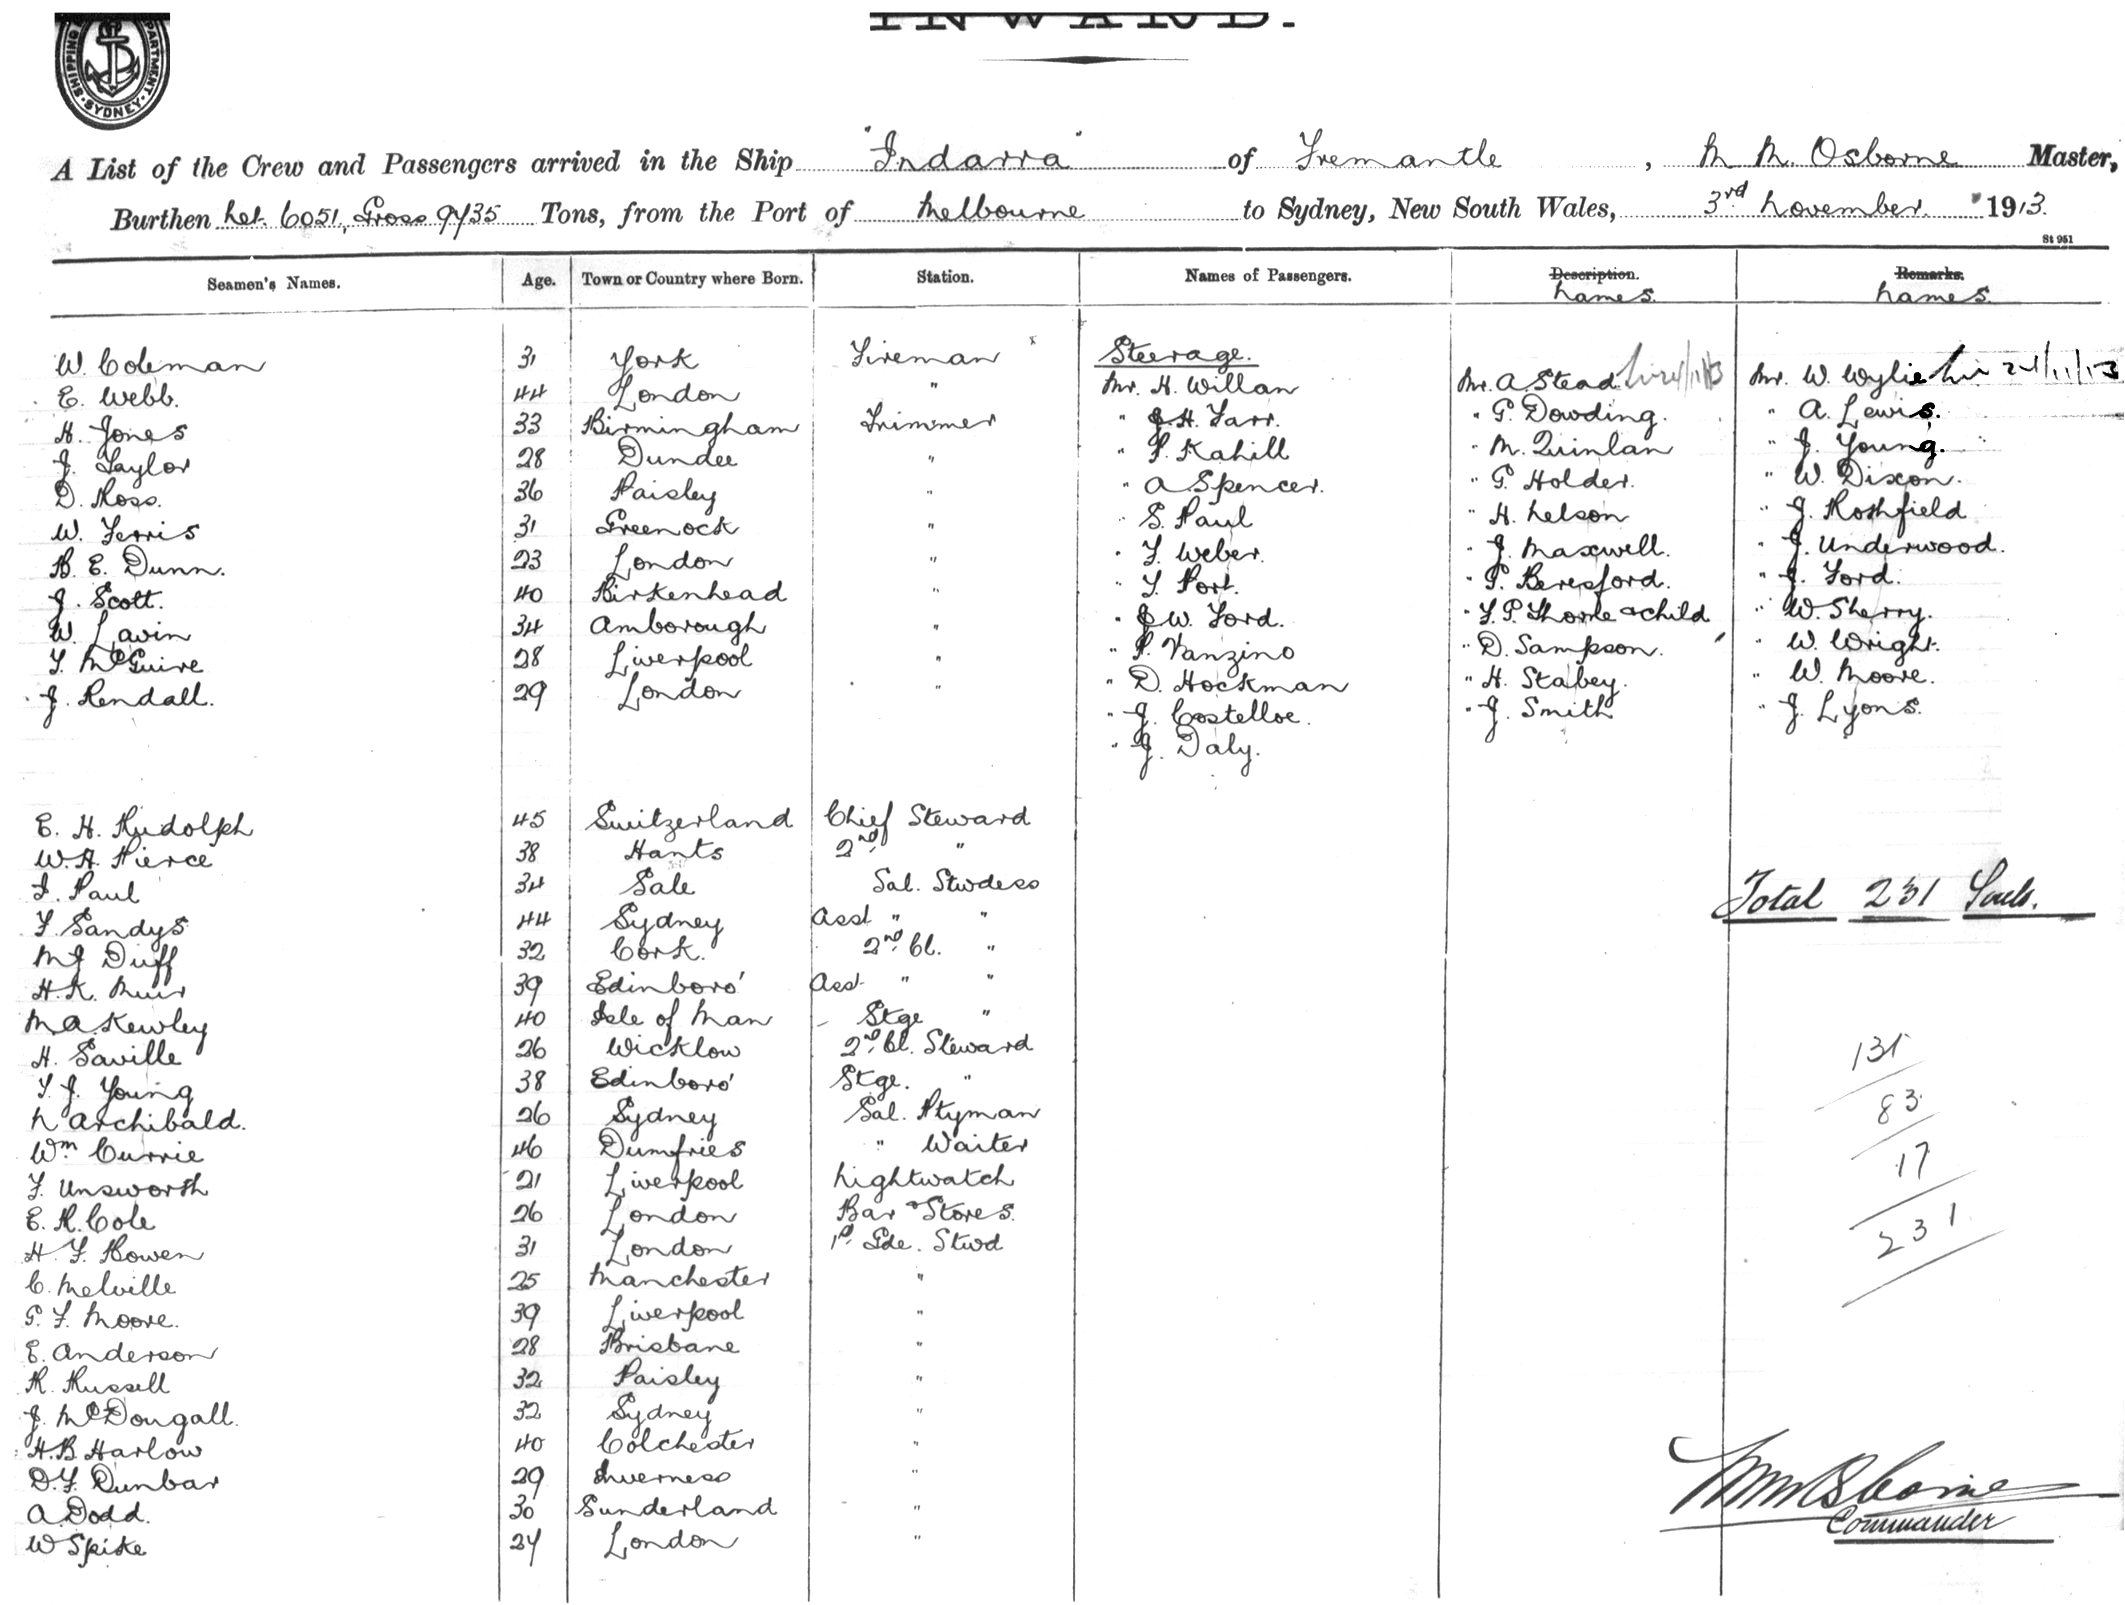 SHIPPING DEPARTMENT SYDNEY
INWARD.
A List of the Crew and Passengers arrived in the Ship "Indarra" of Fremantle, M M. Osborne Master,
Burthen Net. 6051, Gross 9735 Tons, from the Port of Melbourne to Sydney, New South Wales, 3rd November 1913.
St 951
Seamen's Names. Age. Town or Country where Born. Station. Names of Passengers. Description. Remarks.
Names. Names.
Steerage.
W. Coleman 31 York Fireman Mr. H. Willan Mr. A Stead Mr. W. Wylie 24/11/13
E. Webb. 44 London " " J. H. Farr. " G. Dowding. " A. Lewis.
H. Jones 33 Birmingham Trimmer " P. Kahill " M. Quinlan " J. Young.
J. Taylor 28 Dundee " " A Spencer. " G. Holder. " W. Dixon.
D. Ross. 36 Paisley " " S. Paul " H. Nelson " J. Rothfield
W. Ferris 31 Greenock " " F. Weber. " J. Maxwell. " J. Underwood.
B. E. Dunn. 23 London " " F. Port. " P. Beresford. " J. Ford.
J. Scott. 40 Birkenhead " " J W. Ford. " F. P. Thorne & child " W. Sherry.
W. Lavin 34 Amborough " " P. Vanzino " D. Sampson. " W. Wright.
F. McGuire 28 Liverpool " " D. Hockman " H. Stabey. " W. Moore.
J. Rendall. 29 London " " J. Costelloe. " J. Smith " J. Lyons.
" J. Daly.
E. H. Rudolph 45 Switzerland Chief Steward
W. H. Pierce 38 Hants 2nd "
I. Paul 34 Sale Sal. Stwdess
F. Sandys 44 Sydney Asst " "
M J Duff 32 Cork. 2nd Cl. "
H. K. Muir 39 Edinboro' Asst " "
M. A. Kewley 40 Isle of Man Stge "
H. Saville 26 Wicklow 2nd Cl. Steward
F. J. Young 38 Edinboro' Stge. "
N Archibald. 26 Sydney Sal. Ptyman
Wm Currie 46 Dumfries " Waiter
F. Unsworth 21 Liverpool Nightwatch
E. R. Cole 26 London Bar & Stores.
H. F. Bowen 31 London 1st Gde. Stwd
C. Melville 25 Manchester "
G. F. Moore. 39 Liverpool "
E. Anderson 28 Brisbane "
R. Russell 32 Paisley "
J. McDougall. 32 Sydney "
H. B Harlow 40 Colchester "
D. F. Dunbar 29 Inverness "
A. Dodd. 30 Sunderland "
W Spike 24 London "
Total 231 Souls.
131
83
17
231
M M Osborne
Commander